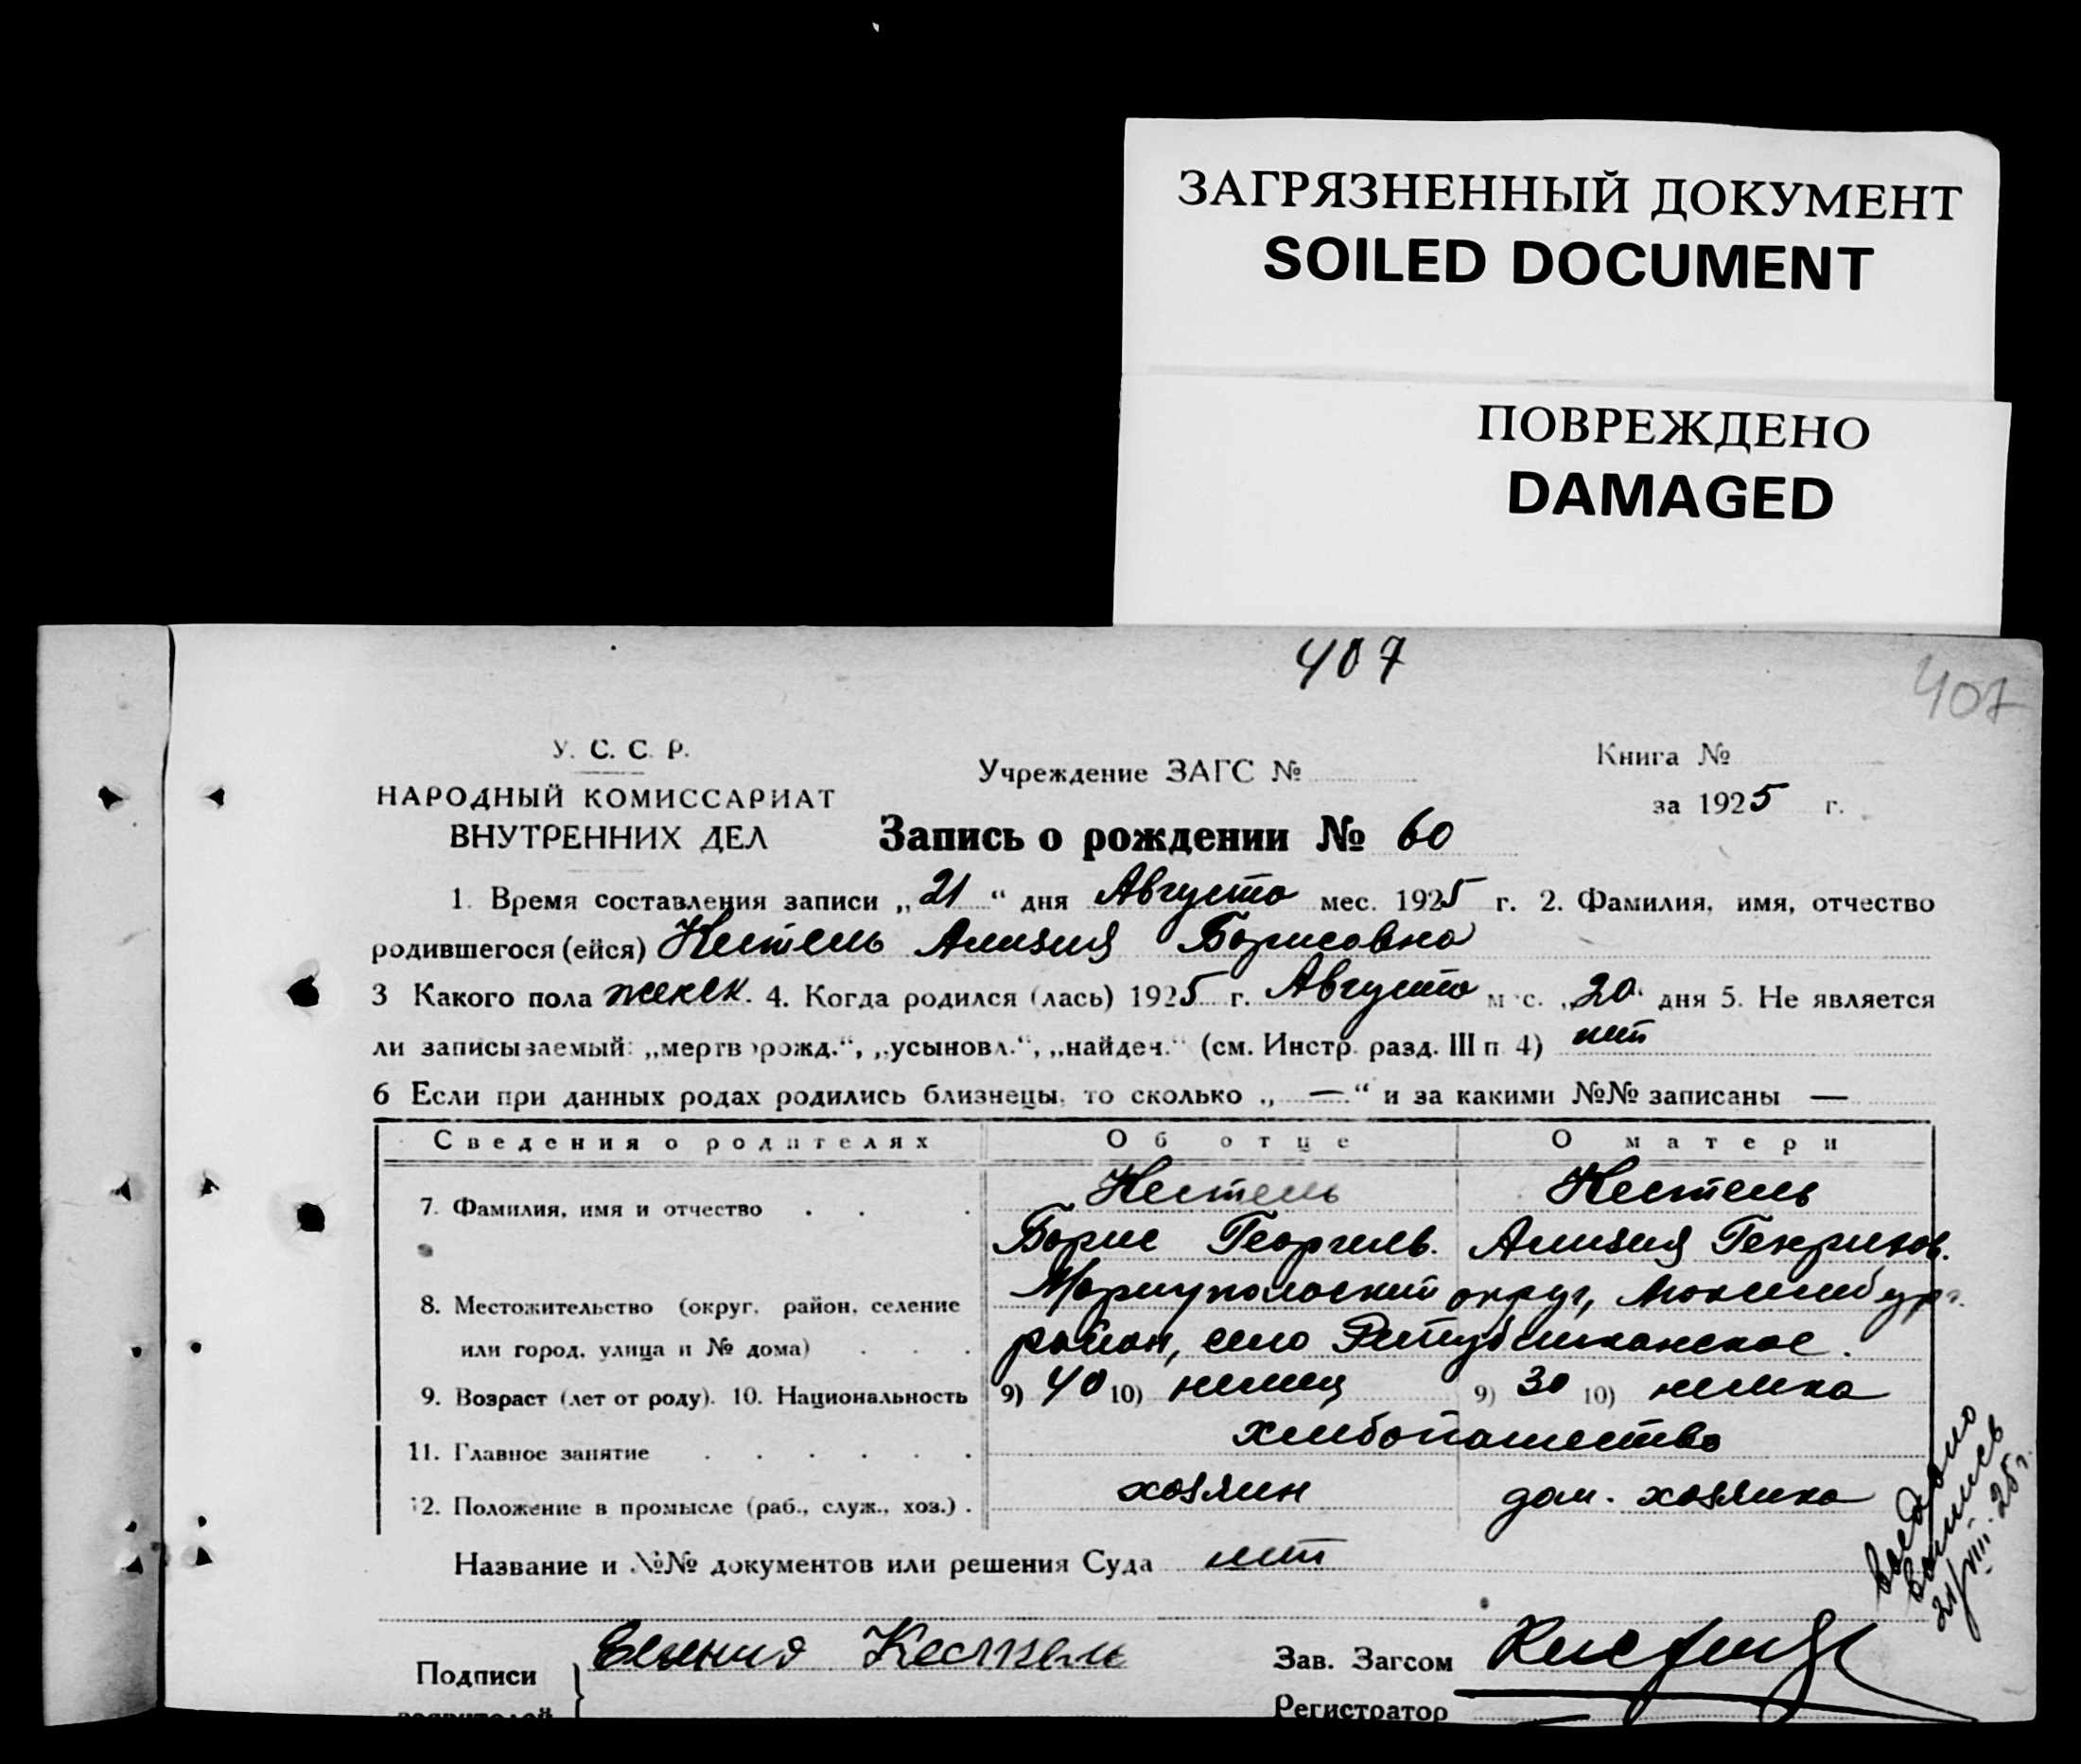 ЗАГРЯЗНЕННЫЙ ДОКУМЕНТ
SOILED DOCUMENT
ПОВРЕЖДЕНО
DAMAGED
407
407
У. С. С. Р.
НАРОДНЫЙ КОМИССАРИАТ
ВНУТРЕННИХ ДЕЛ
Учреждение ЗАГС №
Книга №
за 1925 г.
Запись о рождении № 60
1. Время составления записи „21“ дня Августа мес. 1925 г. 2. Фамилия, имя, отчество
родившегося (ейся) Нестель Ализия Борисовна
3 Какого пола женск. 4. Когда родился (лась) 1925 г. Августа мес. „20“ дня 5. Не является
ли записываемый: „мертворожд.“, „усыновл.“, „найден.“ (см. Инстр. разд. III п 4) нет
6 Если при данных родах родились близнецы, то сколько „—“ и за какими №№ записаны —
Сведения о родителях Об отце О матери
7. Фамилия, имя и отчество Нестель Нестель
Борис Георгиев. Ализия Генрихов.
8. Местожительство (округ, район, селение Мариупольский округ, Люксембург.
или город, улица и № дома) район, село Республиканское.
9. Возраст (лет от роду). 10. Национальность 9) 40 10) немец 9) 30 10) немка
11. Главное занятие хлебопашество
12. Положение в промысле (раб., служ., хоз.) хозяин дом. хозяйка
Название и №№ документов или решения Суда нет
Подписи
Зав. Загсом
Регистратор
выпись
21/VIII 25 г.